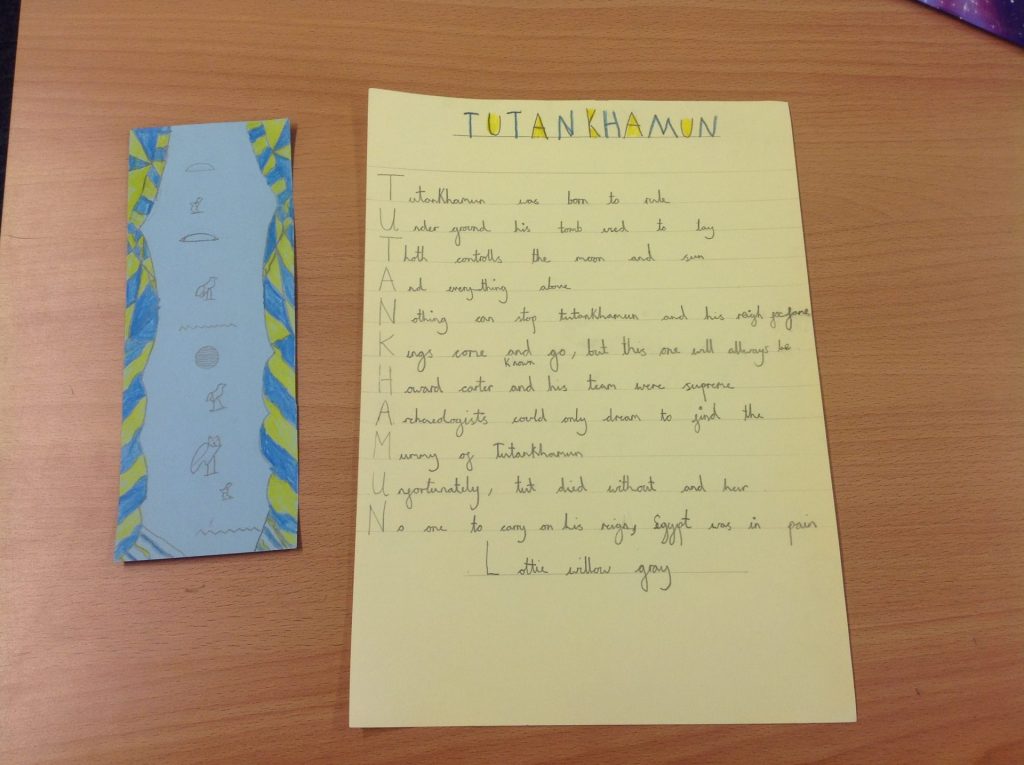 TUTANKHAMUN
Tutankhamun was born to rule
Under ground his tomb used to lay
Thoth controlls the moon and sun
And everything above
Nothing can stop tutankhamun and his reigh
Kings come and go, but this one will allways be
known
Howard carter and his team were supreme
Archaeologists could only dream to find the
Mummy of Tutankhamun
Unfortunately, tut died without and heir
No one to carry on his reign, Egypt was in pain
Lottie willow gray